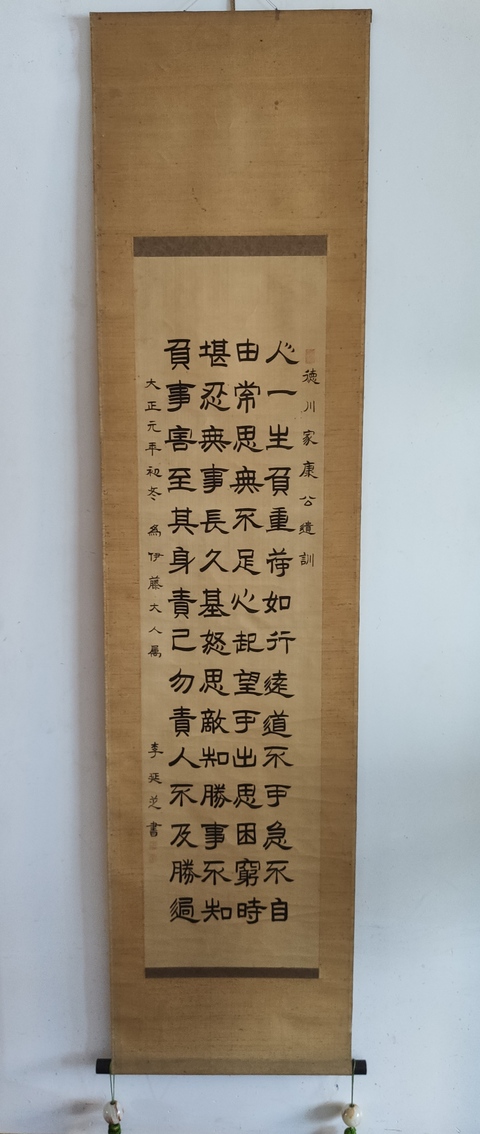 徳川家康公遺訓
人一生負重荷如行遠道不可急不自
由常思無不足心起望可出思困窮時
堪忍無事長久基怒思敵知勝事不知
負事害至其身責己勿責人不及勝過
大正元年初冬 為伊藤大人属 李延芝書